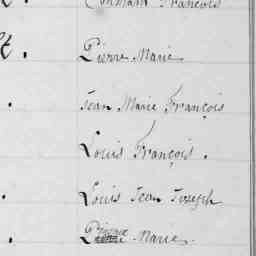 François
Pierre Marie
Jean Marie François
Louis François.
Louis Jean Joseph
Marie.